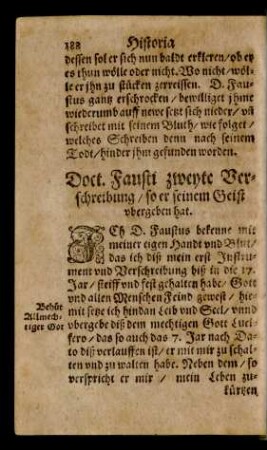 188 Historia
dessen sol er sich nun baldt erkleren/ob er
es thun wölle oder nicht. Wo nicht/wöl-
le er jhn zu stücken zerreissen. D. Fau-
stus gantz erschrocken/bewilliget jhme
wiederumb auff newe setzt sich nieder/vñ
schreibet mit seinem Bluth/wie folget/
welches Schreiben denn nach seinem
Todt/hinder jhm gefunden worden.
Doct. Fausti zweyte Ver-
schreibung/so er seinem Geist
vbergeben hat.
ICh D. Faustus bekenne mit
meiner eigen Handt vnd Blut/
das ich diß mein erst Instru-
ment vnd Verschreibung biß in die 17.
Jar/steiff vnd fest gehalten habe/Gott
vnd allen Menschen Feind gewest/hie-
mit setze ich hindan Leib vnd Seel/vnnd
Behüt
Allmech-
tiger Got
vbergebe diß dem mechtigen Gott Luci-
fero/das so auch das 7. Jar nach Da-
to diß verlauffen ist/er mit mir zu schal-
ten vnd zu walten habe. Neben dem/so
verspricht er mir/mein Leben zu-
kürtzen